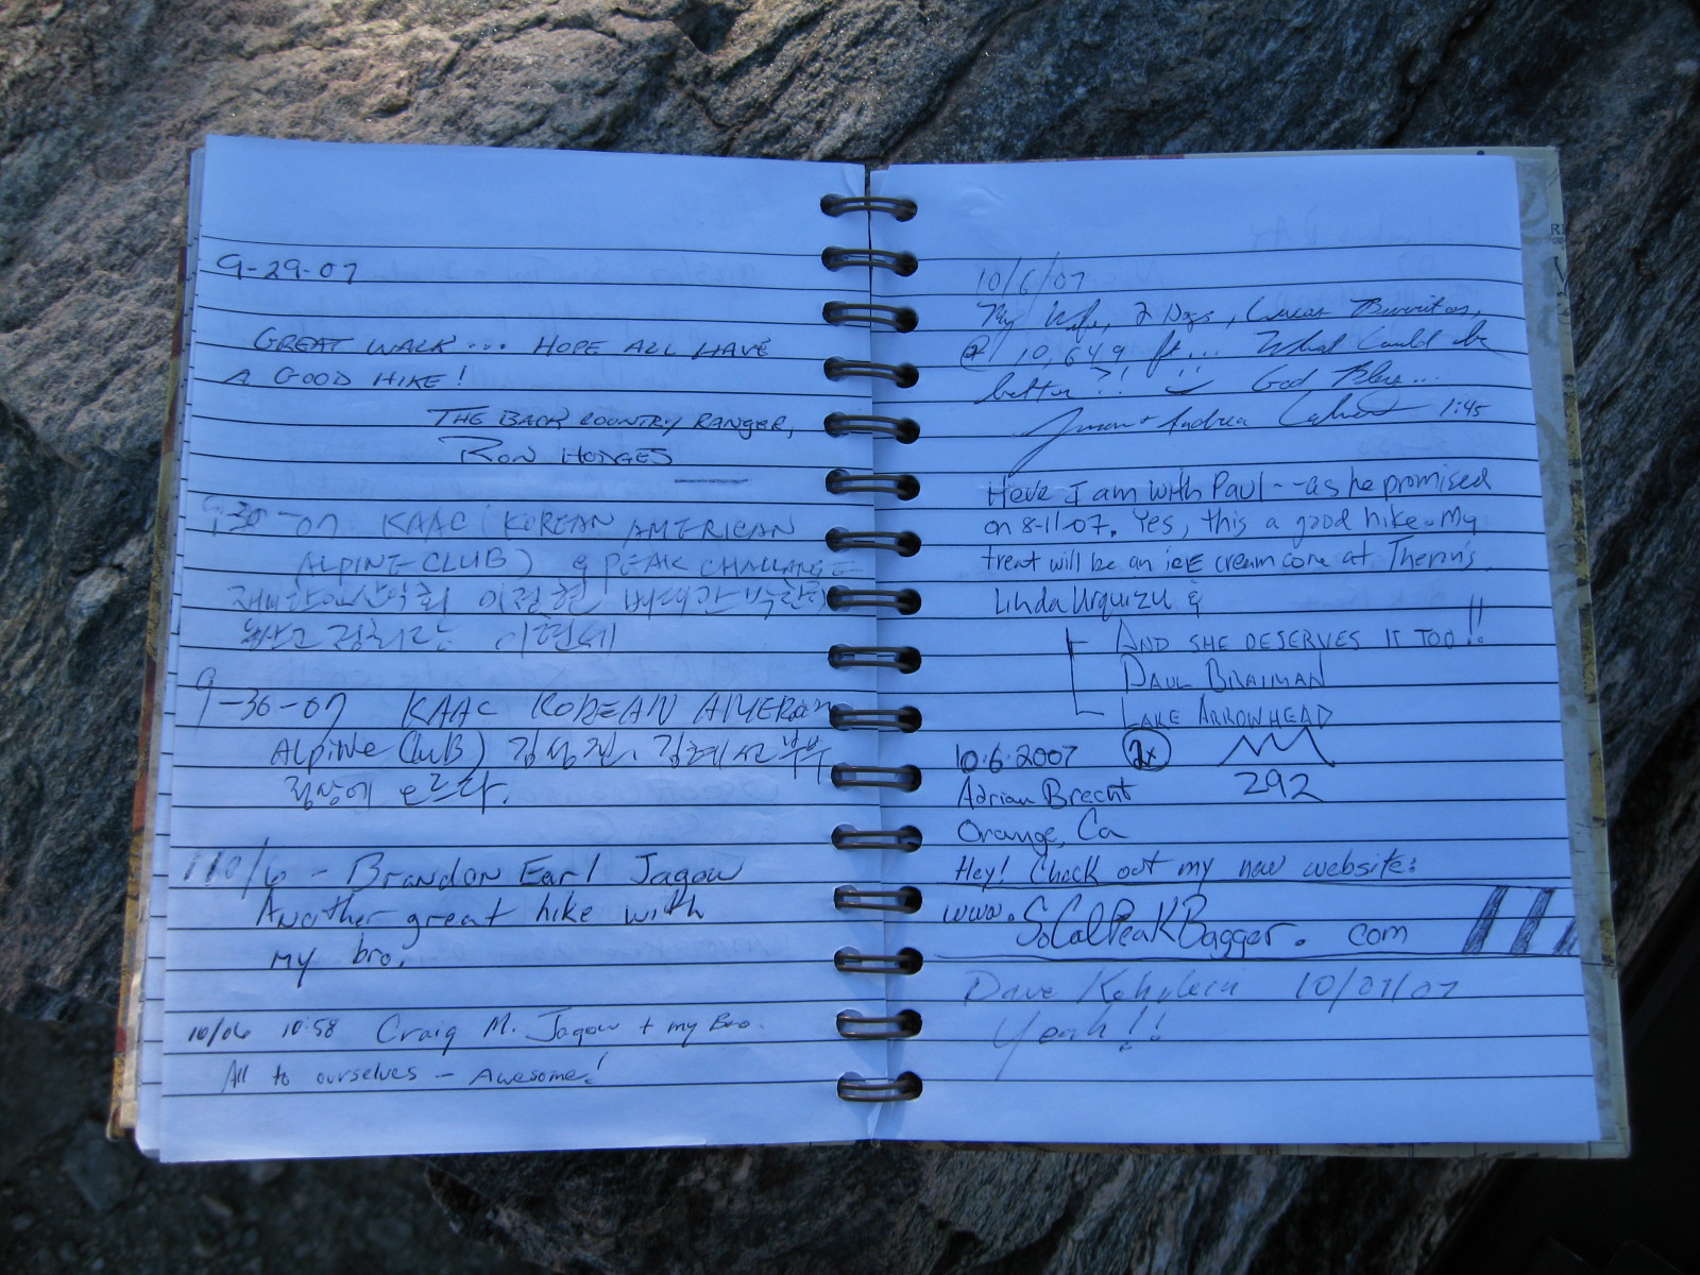 9-29-07
GREAT WALK... HOPE ALL HAVE
A GOOD HIKE!
THE BACK COUNTRY RANGER,
RON HODGES
9-30-07 KAAC (KOREAN AMERICAN
ALPINE CLUB) 9 PEAK CHALLANGE
재미한인산악회 이정현
이현세
9-30-07 KAAC KOREAN AMERican
Alpine Club) 김성진, 김혜선 부부
정상에 오르다.
10/6 - Brandon Earl Jagow
Another great hike with
my bro.
10/06 10:58 Craig M. Jagow + my Bro.
All to ourselves - Awesome!
10/6/07
My Wife, 2 Dogs, Burritos,
@ 10,649 ft... What could be
better?!, God Bless...
+ Andrea 1:45
Here I am with Paul -- as he promised
on 8-11-07. Yes, this a good hike. My
treat will be an icE cream cone at Therin's.
Linda Urquizu &
AND SHE DESERVES IT TOO!!
PAUL BRAIMAN
LAKE ARROWHEAD
10.6.2007 2x
292
Adrian Brecht
Orange, Ca
Hey! Check out my new website:
www.SoCalPeakBagger.com
Dave 10/07/07
Yeah!!